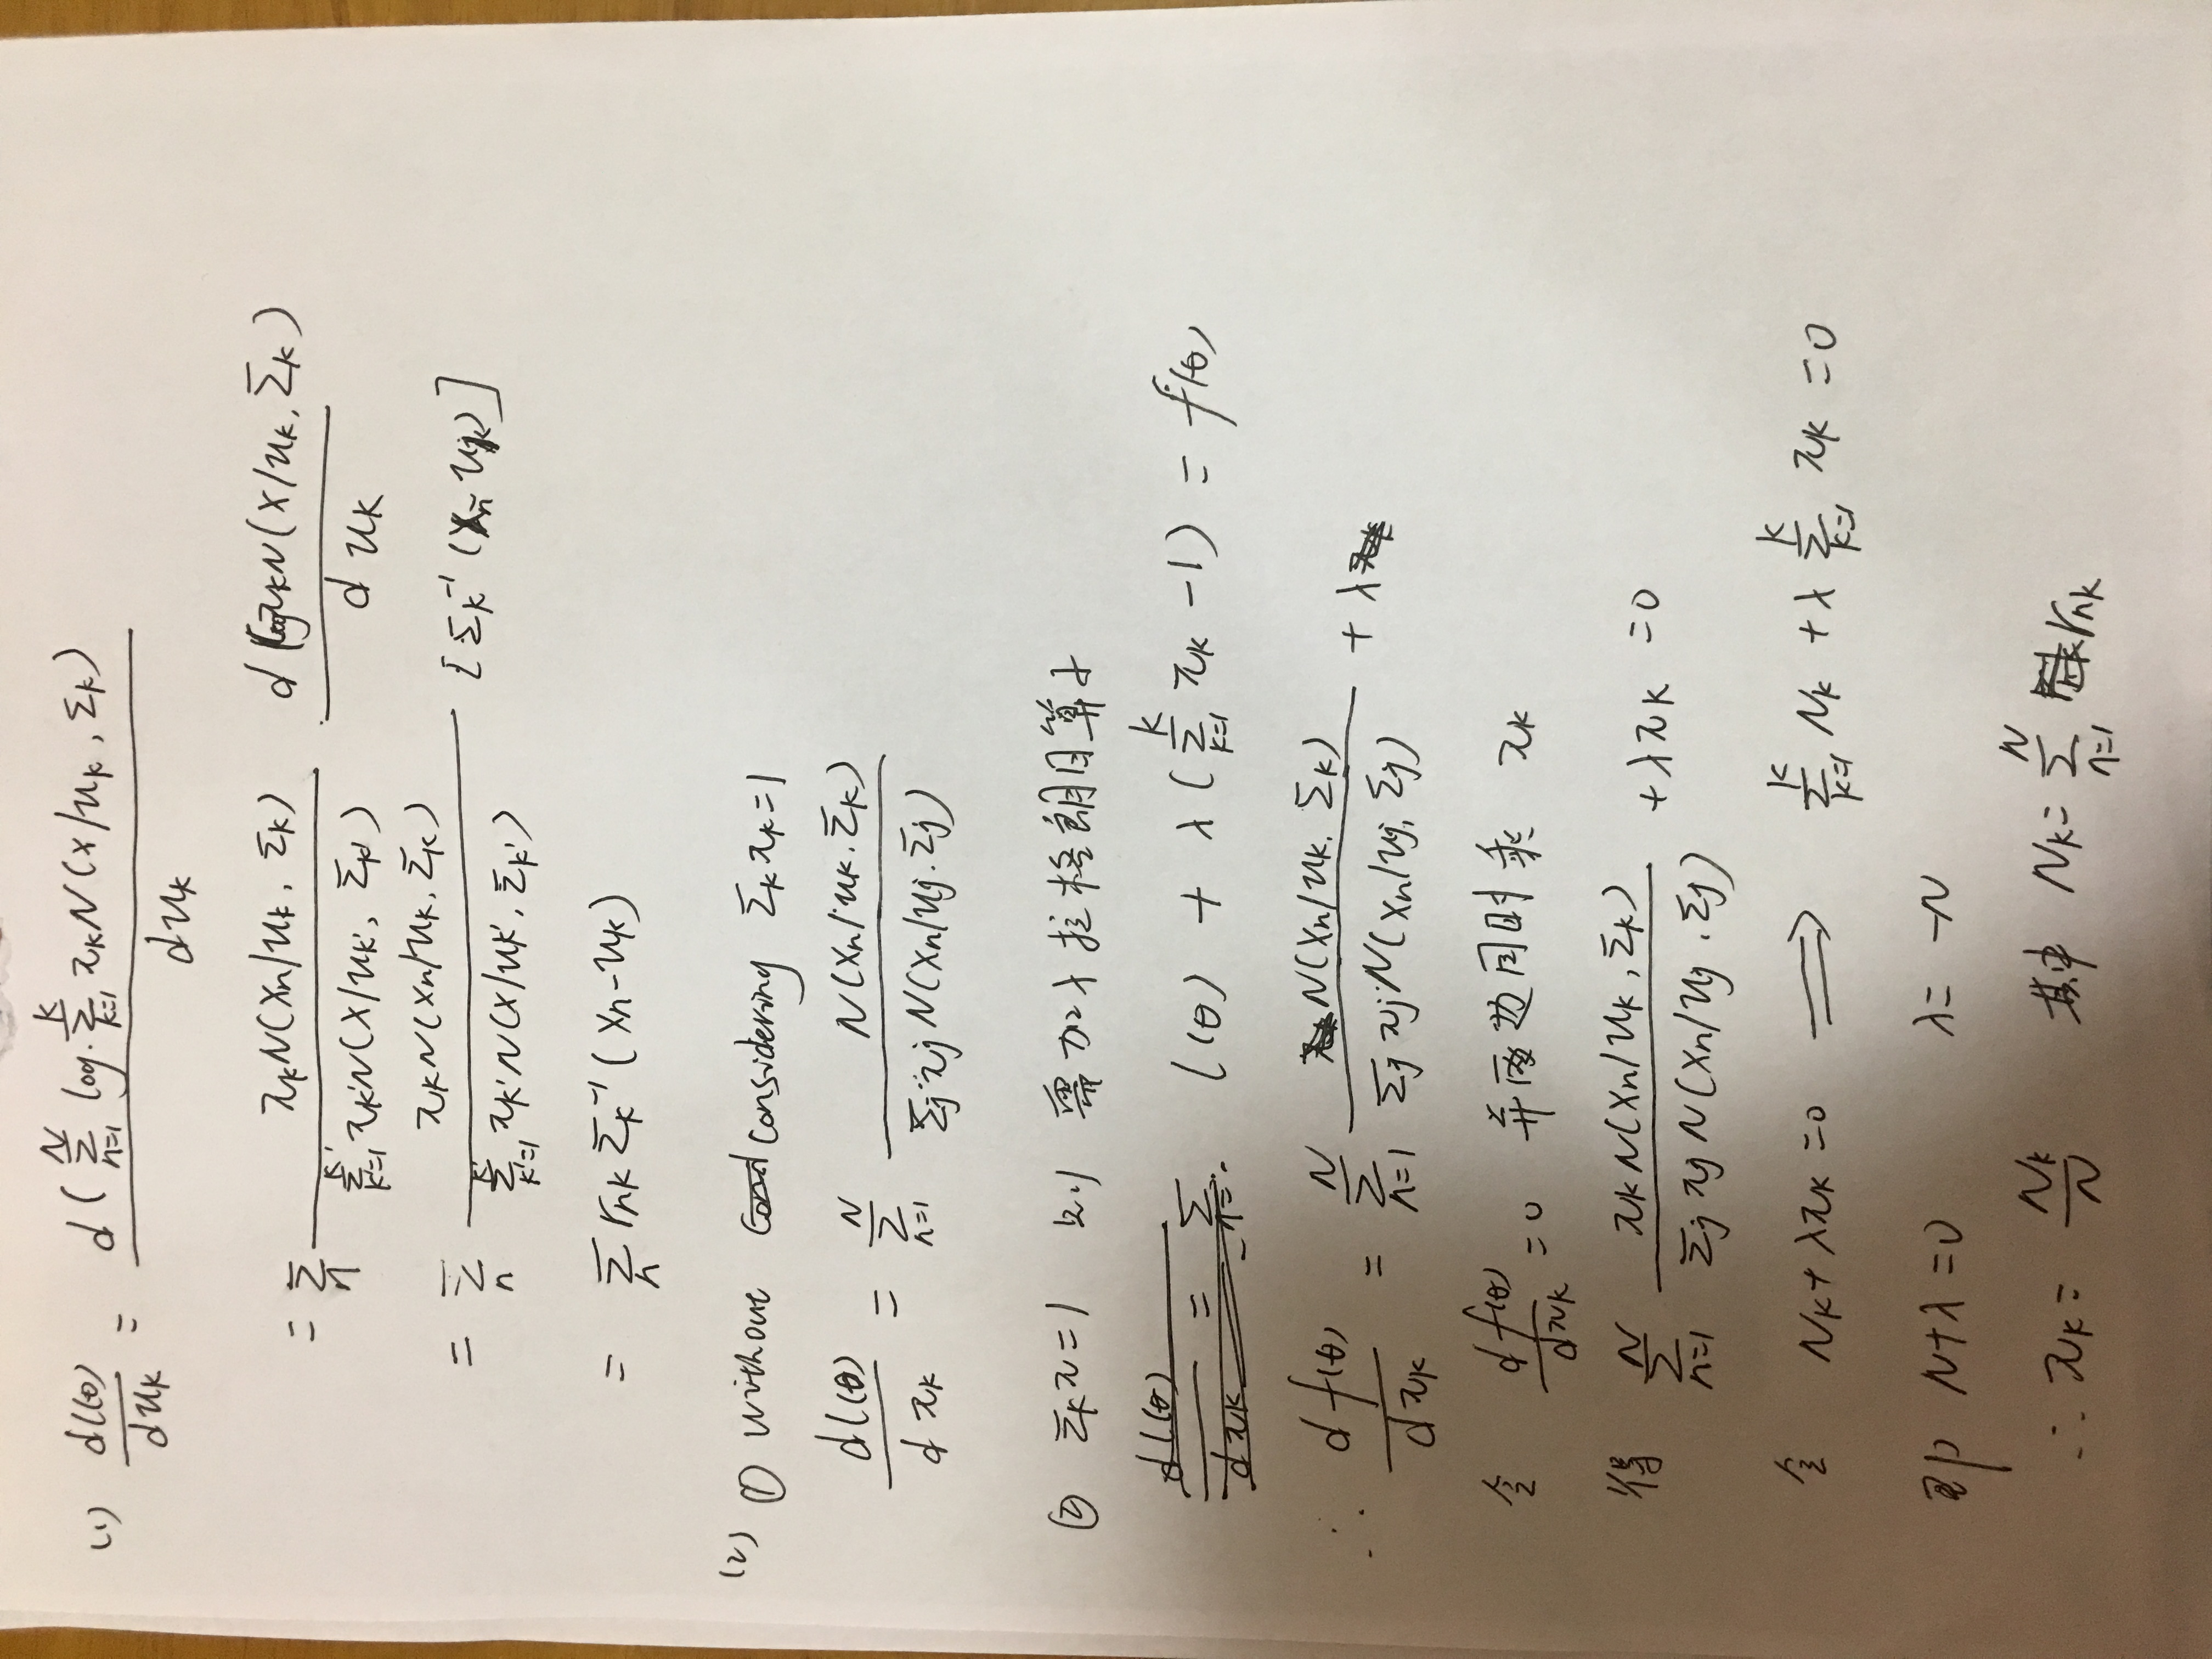 (1) dl(θ)/duk = d(∑_{n=1}^{N} log ∑_{k=1}^{K} πkN(x/uk, Σk)) / duk
= ∑_n πkN(xn/uk, Σk) / ∑_{k'=1}^{K'} πk'N(x/uk', Σk') d logπkN(x/uk, Σk) / duk
= ∑_n πkN(xn/uk, Σk) / ∑_{k'=1}^{K'} πk'N(x/uk', Σk') [Σk⁻¹(xn-uk)]
= ∑_n rnk Σk⁻¹(xn-uk)
(2) ① without considering Σkπk=1
dl(θ)/dπk = ∑_{n=1}^{N} N(xn/uk, Σk) / Σj πj N(xn/uj, Σj)
② Σkπ=1 则 需加入拉格朗日算子
l(θ) + λ(∑_{k=1}^{K} πk-1) = f(θ)
∴ df(θ)/dπk = ∑_{n=1}^{N} N(xn/uk, Σk) / Σj πj N(xn/uj, Σj) + λ
令 df(θ)/dπk =0 并两边同时乘 πk
得 ∑_{n=1}^{N} πkN(xn/uk, Σk) / Σj πj N(xn/uj, Σj) + λπk =0
令 Nk+λπk=0 ⟹ ∑_{k=1}^{K} Nk + λ ∑_{k=1}^{K} πk =0
即 N+λ=0 λ=-N
∴ πk= Nk/N 其中 Nk= ∑_{n=1}^{N} rnk